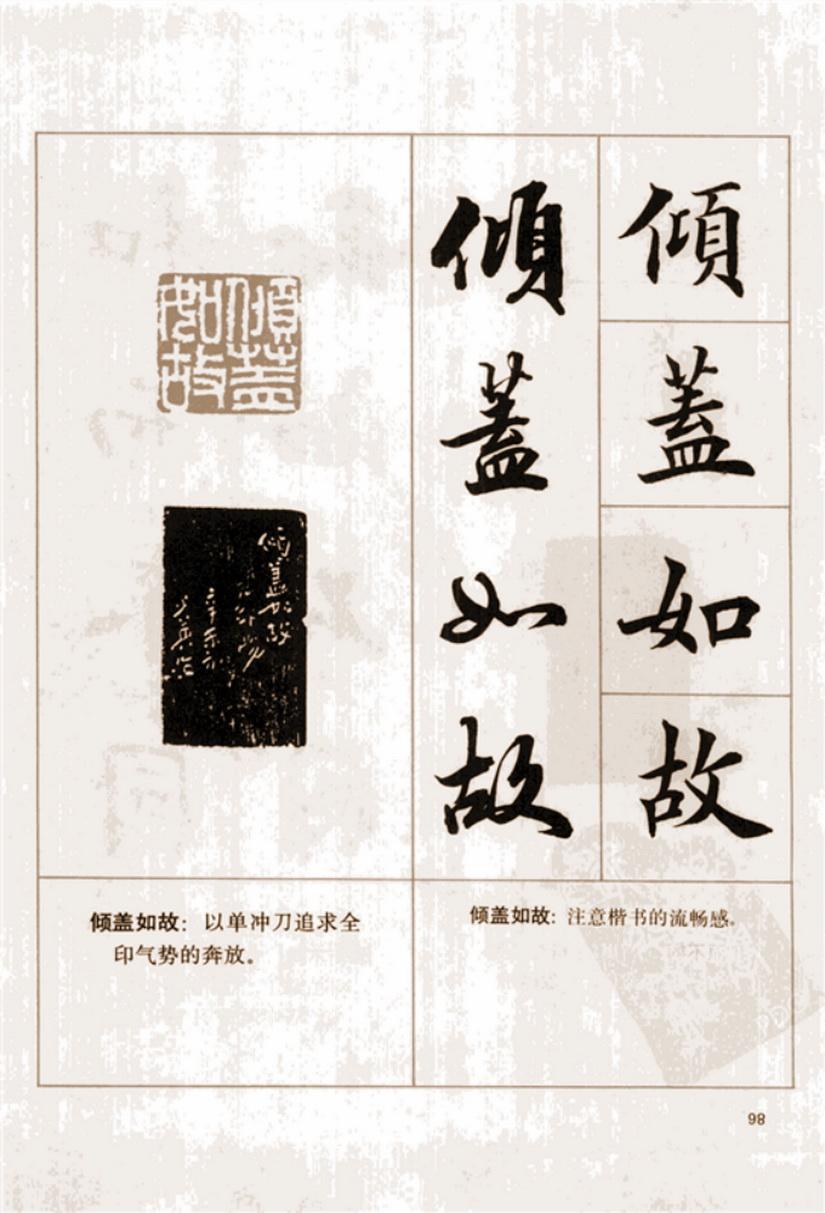 傾
蓋
如
故
傾
蓋
如
故
傾蓋
如故
傾蓋如故
倾盖如故：以单冲刀追求全
印气势的奔放。
倾盖如故：注意楷书的流畅感。
98